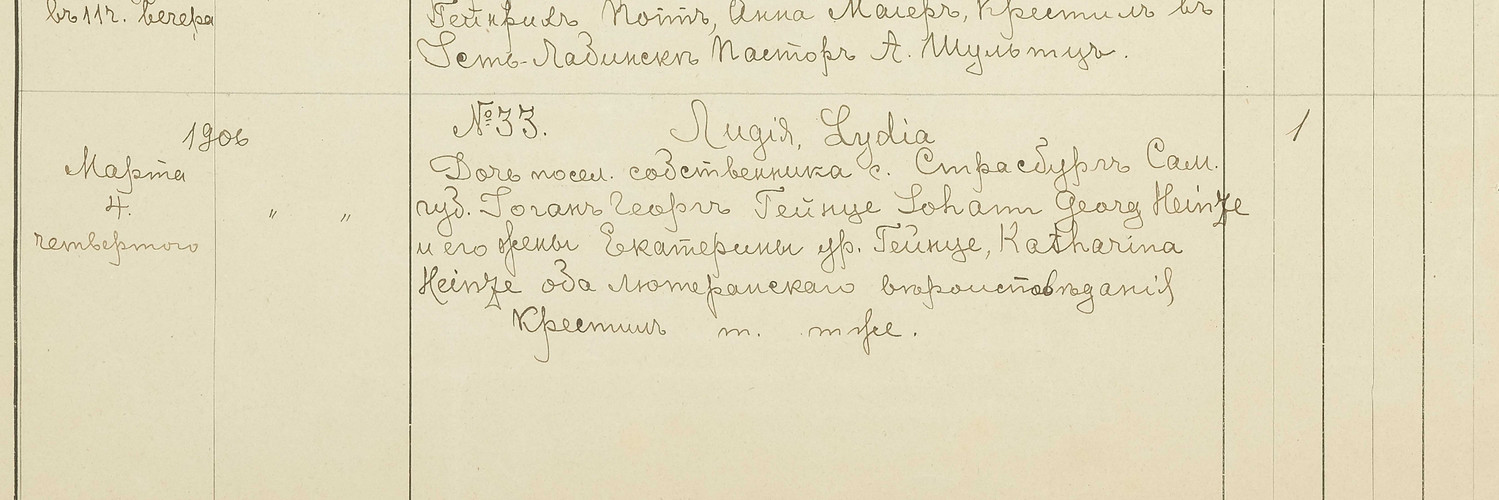 въ 11 ч. вечера
Гейнрихъ Поттъ, Анна Маіеръ, Крестилъ въ
Усть-Лабинскѣ Пасторъ А. Шультцъ.
1906
Марта
4.
четвертого
" "
№ 33. Лидія, Lydia
Дочь посел. собственника с. Страсбургъ Сам.
губ. Іоганъ Георгъ Гейнце Johann Georg Heinze
и его жены Екатерины ур. Гейнце, Katharina
Heinze оба лютеранскаго вѣроисповѣданія
Крестилъ т. тже.
1